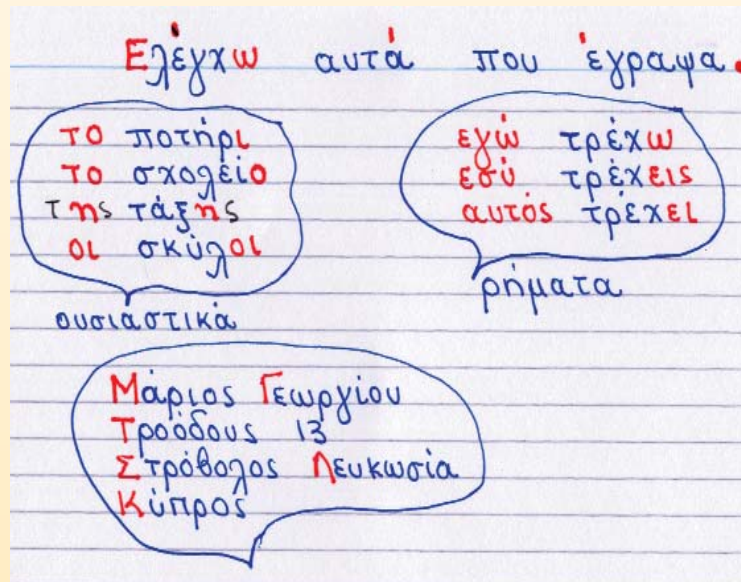 Ελέγχω αυτά που έγραψα.
το ποτήρι
το σχολείο
της τάξης
οι σκύλοι
ουσιαστικά
εγώ τρέχω
εσύ τρέχεις
αυτός τρέχει
ρήματα
Μάριος Γεωργίου
Τροόδους 13
Στρόβολος Λευκωσία
Κύπρος